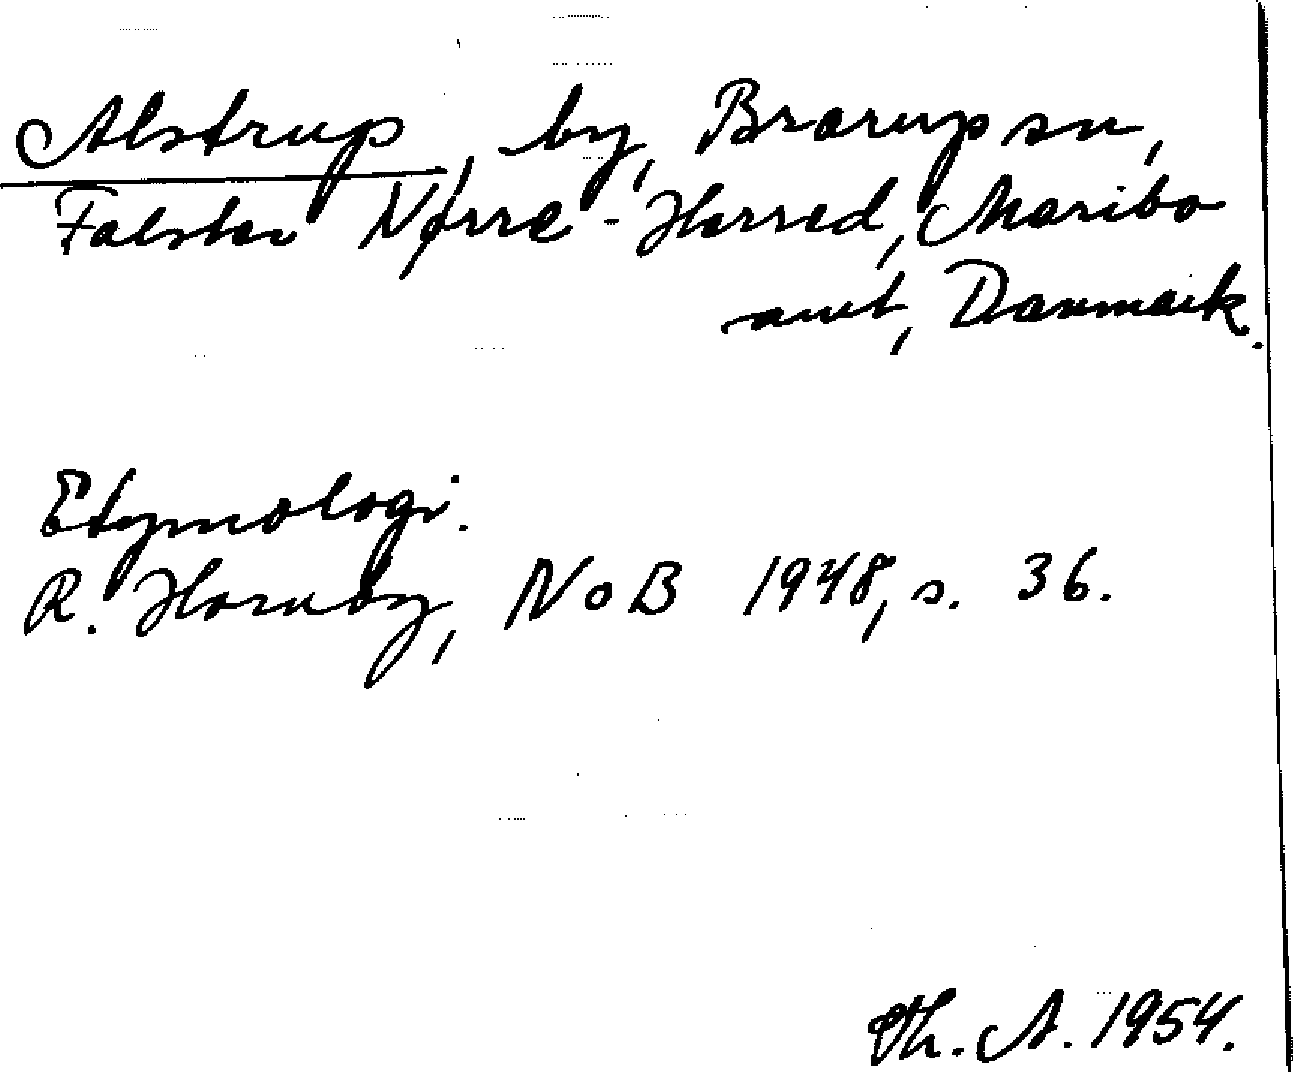 Alstrup, by, Brarup sn,
Falster Nørre-Herred, Maribo
amt, Danmark.
Etymologi.
R. Hornby, NoB 1948, s. 36.
Th. A. 1954.